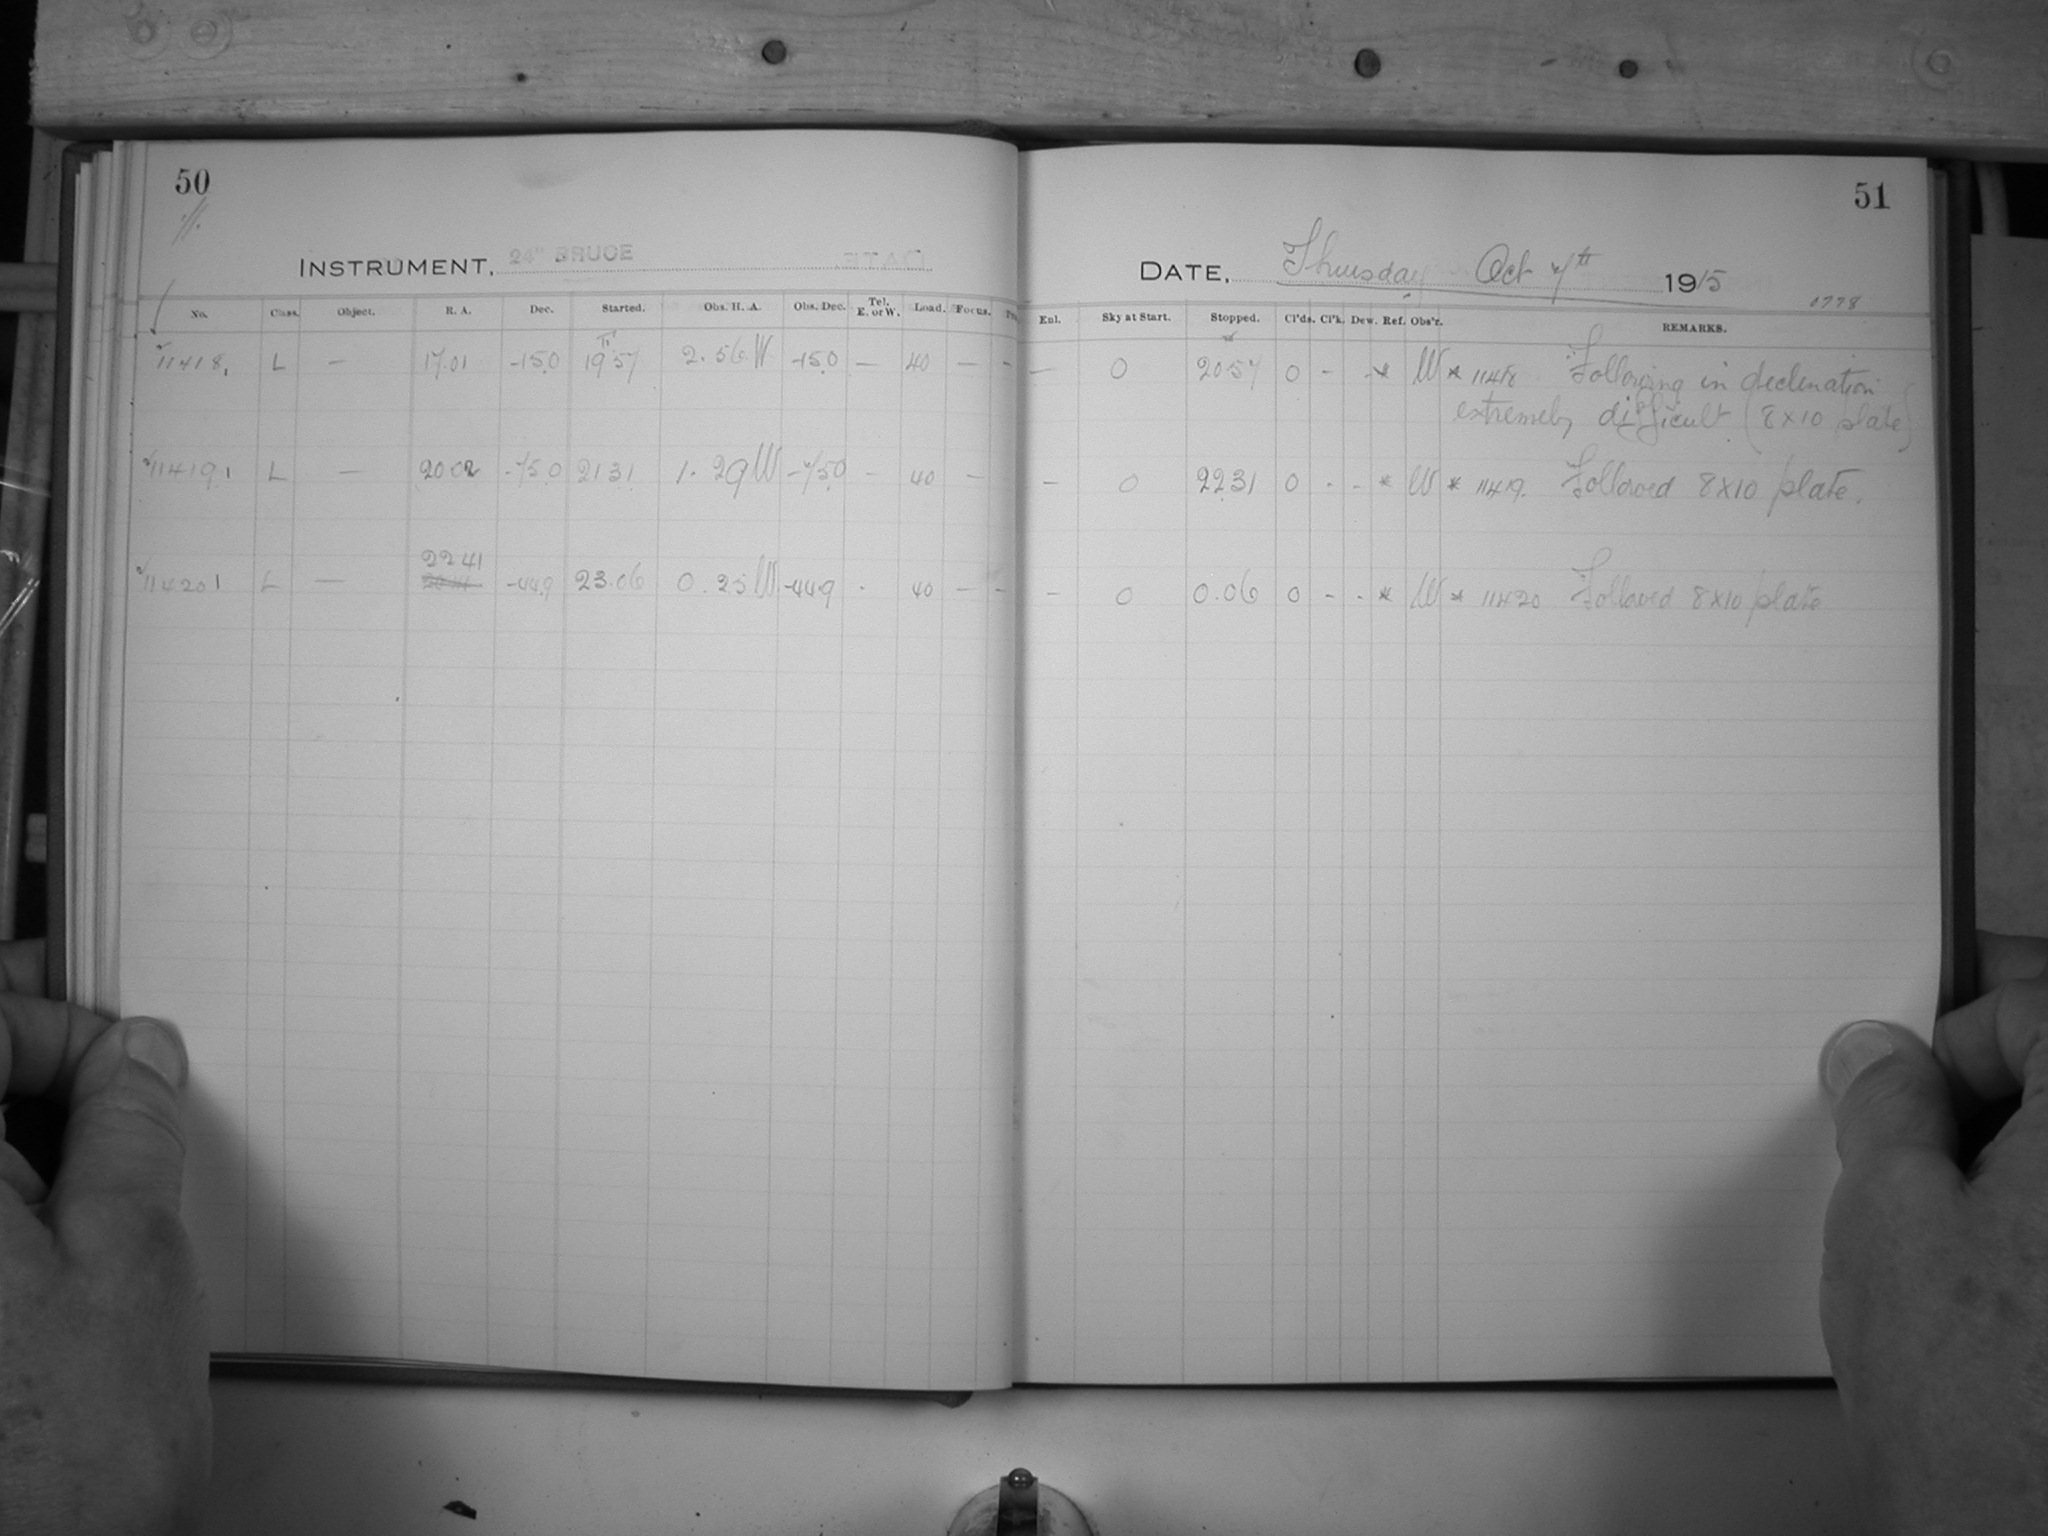 50
INSTRUMENT, 24" BRUCE
No. Class. Object. R. A. Dec. Started. Obs. H. A. Obs. Dec. Tel. E. or W. Load. Focus.
11418 L — 17.01 -15.0 19 57 2.56 W -15.0 — 40 — -
11419 L — 20 02 -75.0 21 31 1.29 W -75.0 - 40 —
22 41
11420 L — -44.9 23.06 0.25 W -44.9 . 40 — -
51
DATE, Thursday Oct 7th 1915
0778
Enl. Sky at Start. Stopped. Cl'ds. Cl'k. Dew. Ref. Obs'r. REMARKS.
— 0 20 57 0 - - * W * 11418 Following in declination
extremely difficult (8x10 plate)
- 0 22 31 0 - - * W * 11419. Followed 8x10 plate.
- 0 0.06 0 - - * W * 11420 Followed 8x10 plate